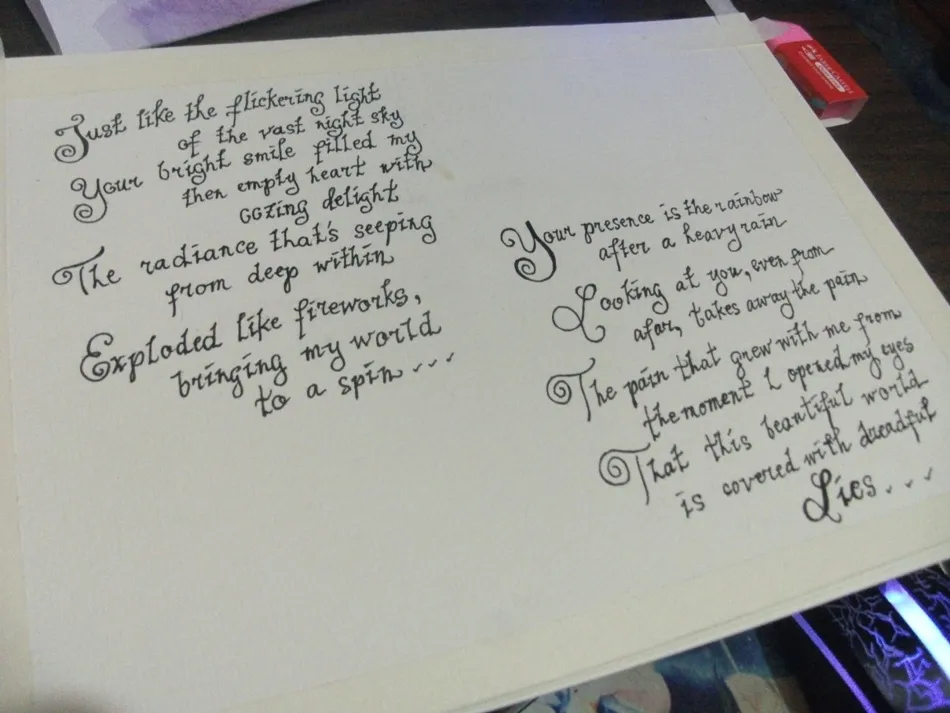 Just like the flickering light
of the vast night sky
Your bright smile filled my
then empty heart with
oozing delight
The radiance that's seeping
from deep within
Exploded like fireworks,
bringing my world
to a spin...
Your presence is the rainbow
after a heavy rain
Looking at you, even from
afar, takes away the pain
The pain that grew with me from
the moment I opened my eyes
That this beautiful world
is covered with dreadful
Lies...